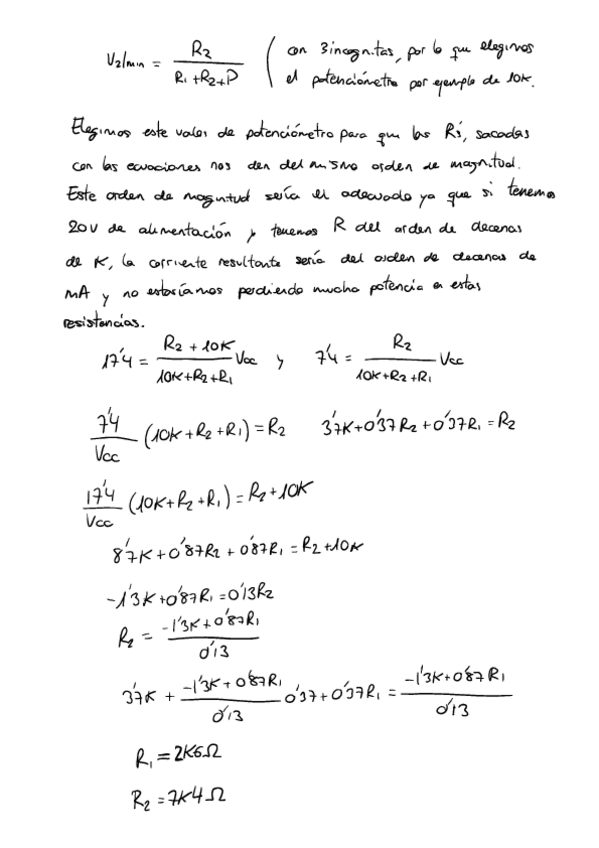 V₂|min = R₂ / (R₁ + R₂ + P) ( con 3 incognitas, por lo que elegimos
el potenciómetro por ejemplo de 10K.
Elegimos este valor de potenciómetro para que las Rs', sacadas
con las ecuaciones nos den del mismo orden de magnitud.
Este orden de magnitud sería el adecuado ya que si tenemos
20V de alimentación y tenemos R del orden de decenas
de K, la corriente resultante sería del orden de decenas de
mA y no estaríamos perdiendo mucha potencia en estas
resistencias.
17'4 = (R₂ + 10K) / (10K + R₂ + R₁) Vcc y 7'4 = R₂ / (10K + R₂ + R₁) Vcc
7'4 / Vcc (10K + R₂ + R₁) = R₂ 3'7K + 0'37R₂ + 0'37R₁ = R₂
17'4 / Vcc (10K + R₂ + R₁) = R₂ + 10K
8'7K + 0'87R₂ + 0'87R₁ = R₂ + 10K
-1'3K + 0'87R₁ = 0'13R₂
R₂ = (-1'3K + 0'87R₁) / 0'13
3'7K + (-1'3K + 0'87R₁) / 0'13 0'37 + 0'37R₁ = (-1'3K + 0'87R₁) / 0'13
R₁ = 2K6Ω
R₂ = 7K4Ω